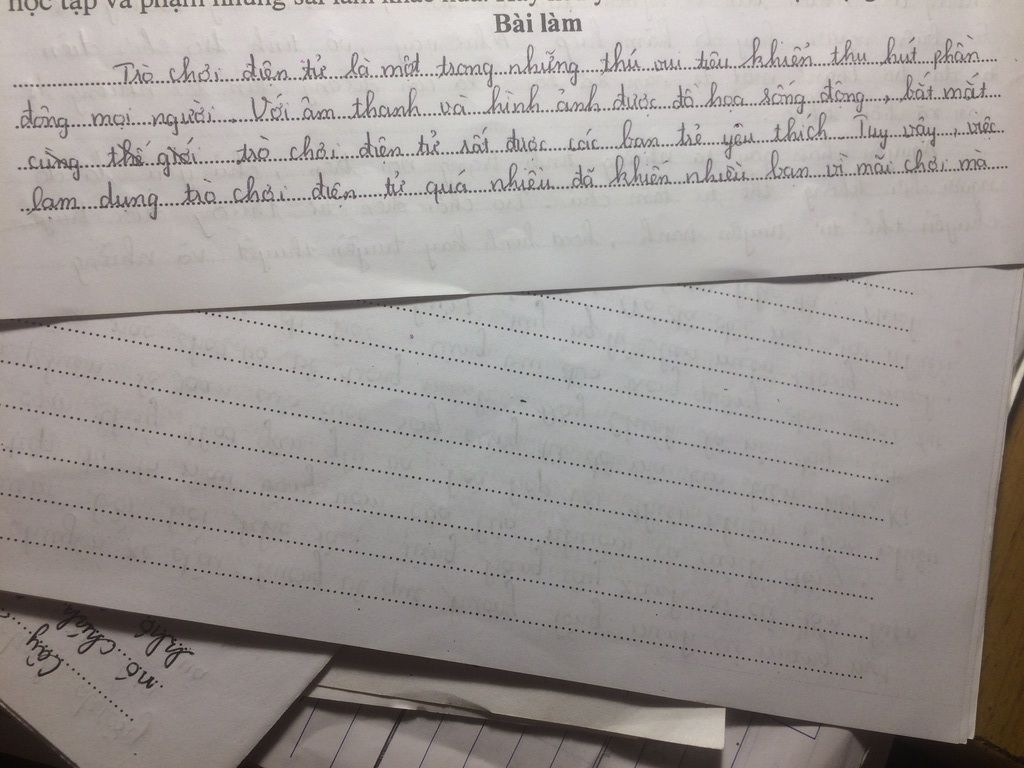 học tập và phạm những sai lầm khác nữa.
Bài làm
Trò chơi điện tử là một trong những thú vui tiêu khiển thu hút phần
đông mọi người. Với âm thanh và hình ảnh được đồ họa sống động, bắt mắt
cùng thế giới trò chơi điện tử rất được các bạn trẻ yêu thích Tuy vậy, việc
lạm dụng trò chơi điện tử quá nhiều đã khiến nhiều bạn vì mãi chơi mà